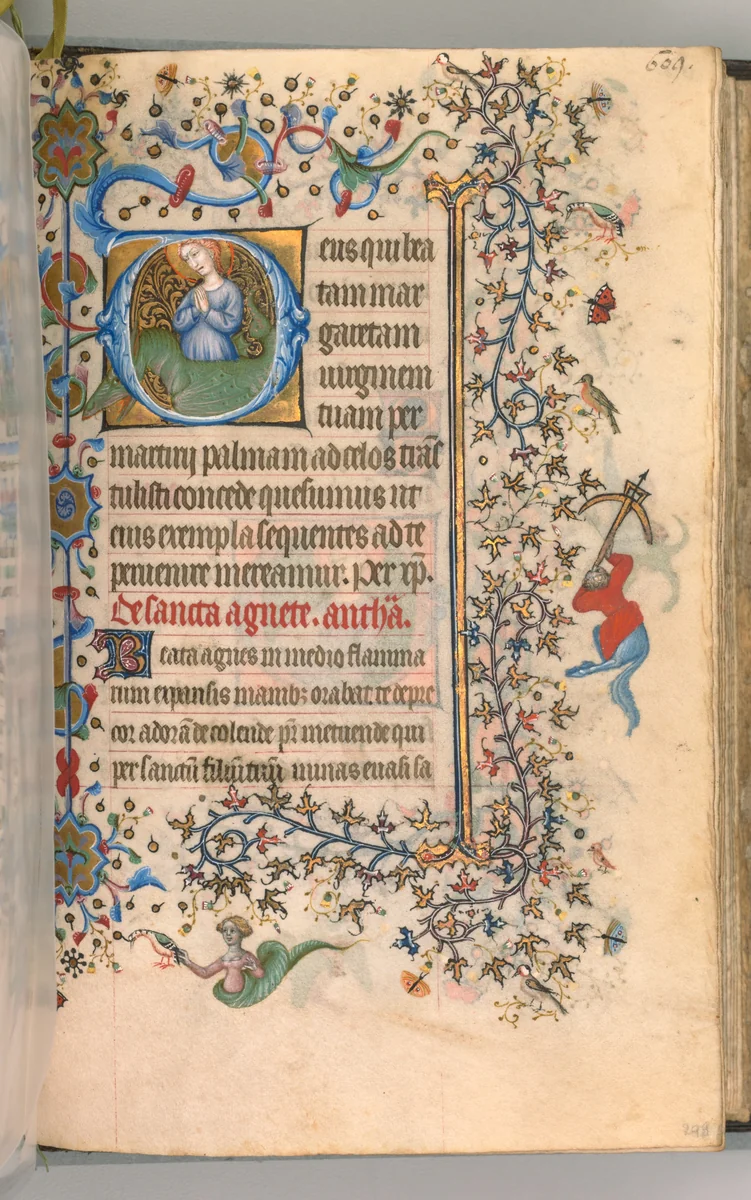 669.
eus qui bea
tam mar
garetam
uirginem
tuam per
martirij palmam ad celos trãs
tulisti concede quesumus ut
eius exempla sequentes ad te
peruenire mereamur. Per xp̃.
De sancta agnete. anthã.
Beata agnes in medio flamma
rum expansis manibꝫ orabat. te depre
cor adorãde colende pr̃ metuende qui
per sanctũ filiũ tuũ minas euasi sa
298